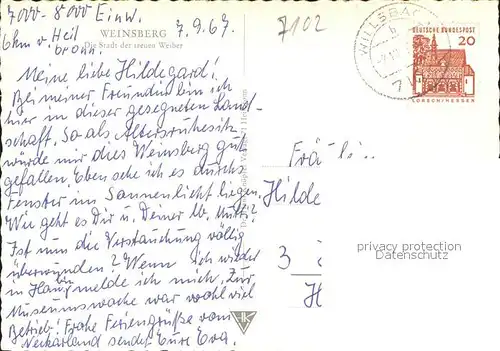 7000 - 8000 Einw. 7.9.67.
6 km v. Heil
bronn.
WEINSBERG
Die Stadt der treuen Weiber
Meine liebe Hildegard!
Bei meiner Freundin bin ich
hier in dieser gesegneten Land-
schaft. So als Altersruhesitz
würde mir dies Weinsberg gut
gefallen. Eben sehe ich es durchs
Fenster im Sonnenlicht liegen.
Wie geht es Dir u. Deiner lb. Mutti?
Ist nun die Verstauchung völlig
überwunden? Wenn ich wieder
in bin, melde ich mich. Zur
Museumswoche war wohl viel
Betrieb! Frohe Feriengrüße vom
Neckarland sendet Eure Eva.
7102
WILLSBACH
b
7
DEUTSCHE BUNDESPOST
20
LORSCH/HESSEN
Fräulei..
Hilde
3
H
privacy protection
Datenschutz